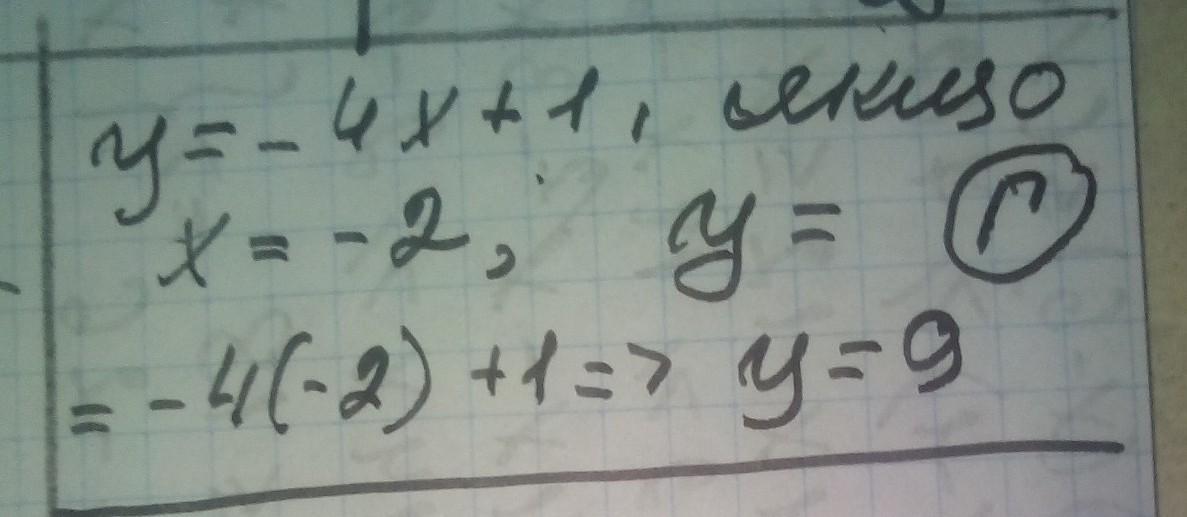 y = - 4x + 1, якщо
x = - 2, y = Г
= - 4(-2) + 1 => y = 9